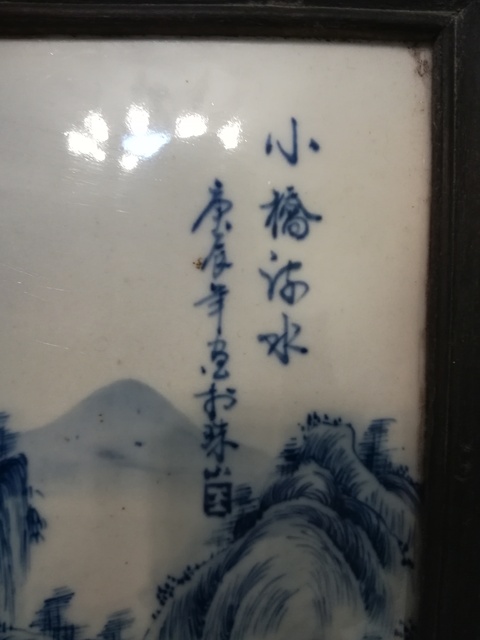 小橋流水
庚辰年画於珠山